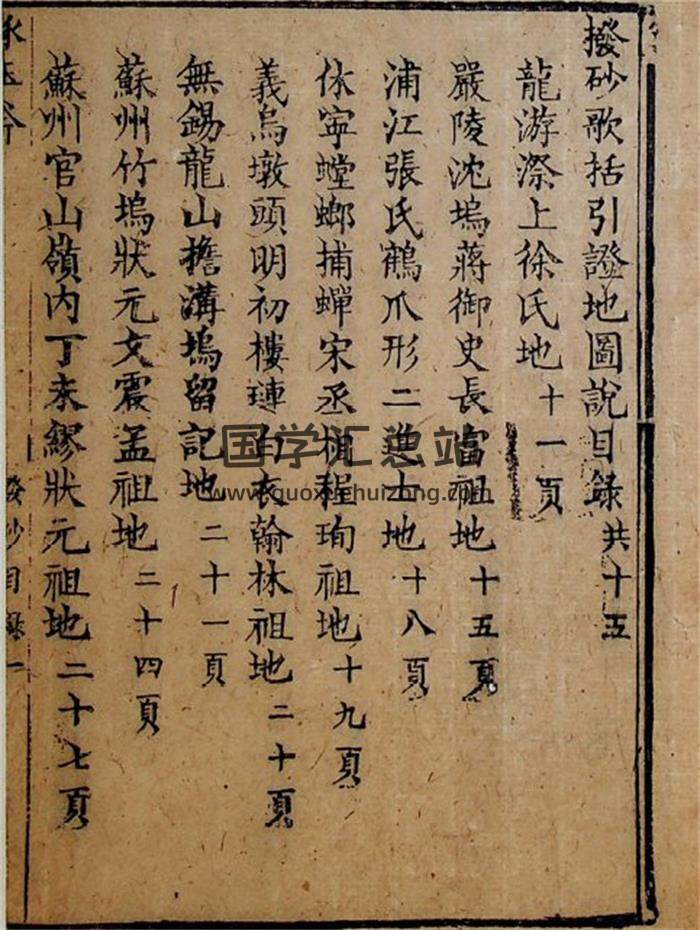 撥砂歌括引證地圖說目錄共十五
龍游漈上徐氏地十一頁
嚴陵沈塢蔣御史長富祖地十五頁
浦江張氏鶴爪形二進士地十八頁
休寧螳螂捕蟬宋丞相程珣祖地十九頁
義烏墩頭明初樓璉白衣翰林祖地二十頁
無錫龍山擔溝塢留記地二十一頁
蘇州竹塢狀元文震孟祖地二十四頁
蘇州官山嶺內丁未繆狀元祖地二十七頁
發砂目錄一
国学汇总站
www.guoxuehuizong.com